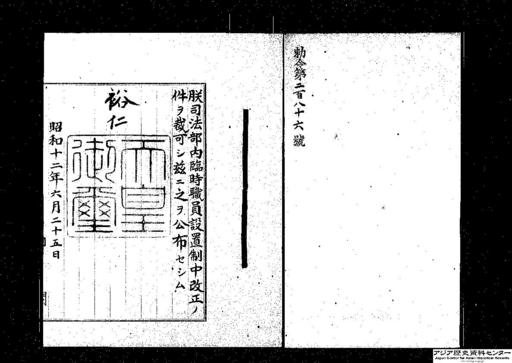 勅令第二百八十六號
朕司法部内臨時職員設置制中改正ノ
件ヲ裁可シ玆ニ之ヲ公布セシム
裕仁
天皇
御璽
昭和十二年六月二十五日
アジア歴史資料センター
Japan Center for Asian Historical Records